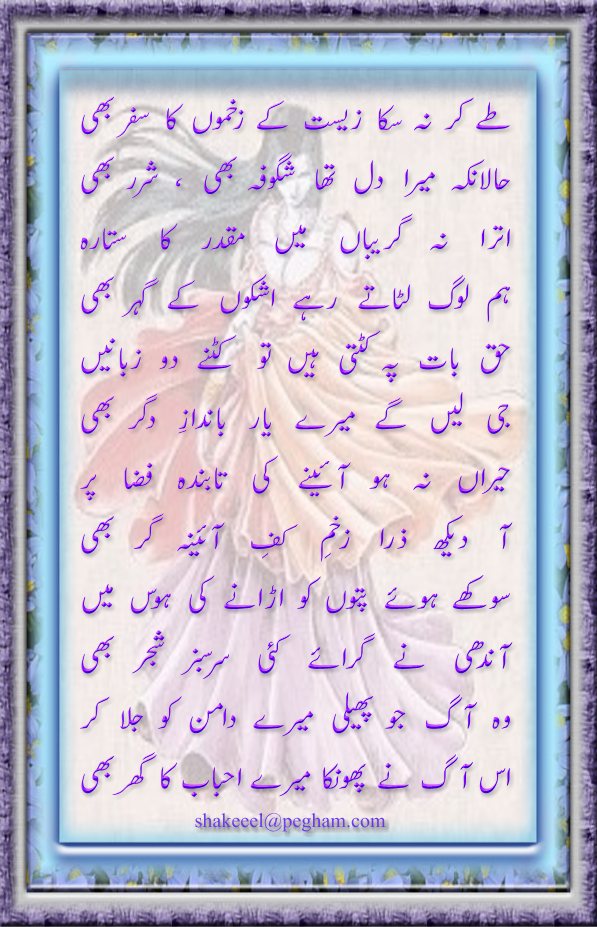 طے کر نہ سکا زیست کے زخموں کا سفر بھی
حالانکہ میرا دل تھا شگوفہ بھی ، شرر بھی
اترا نہ گریباں میں مقدر کا ستارہ
ہم لوگ لٹاتے رہے اشکوں کے گہر بھی
حق بات پہ کٹتی ہیں تو کٹنے دو زبانیں
جی لیں گے میرے یار باندازِ دگر بھی
حیراں نہ ہو آئینے کی تابندہ فضا پر
آ دیکھ ذرا زخمِ کفِ آئینہ گر بھی
سوکھے ہوئے پتوں کو اڑانے کی ہوس میں
آندھی نے گرائے کئی سرسبز شجر بھی
وہ آگ جو پھیلی میرے دامن کو جلا کر
اس آگ نے پھونکا میرے احباب کا گھر بھی
shakeeel@pegham.com